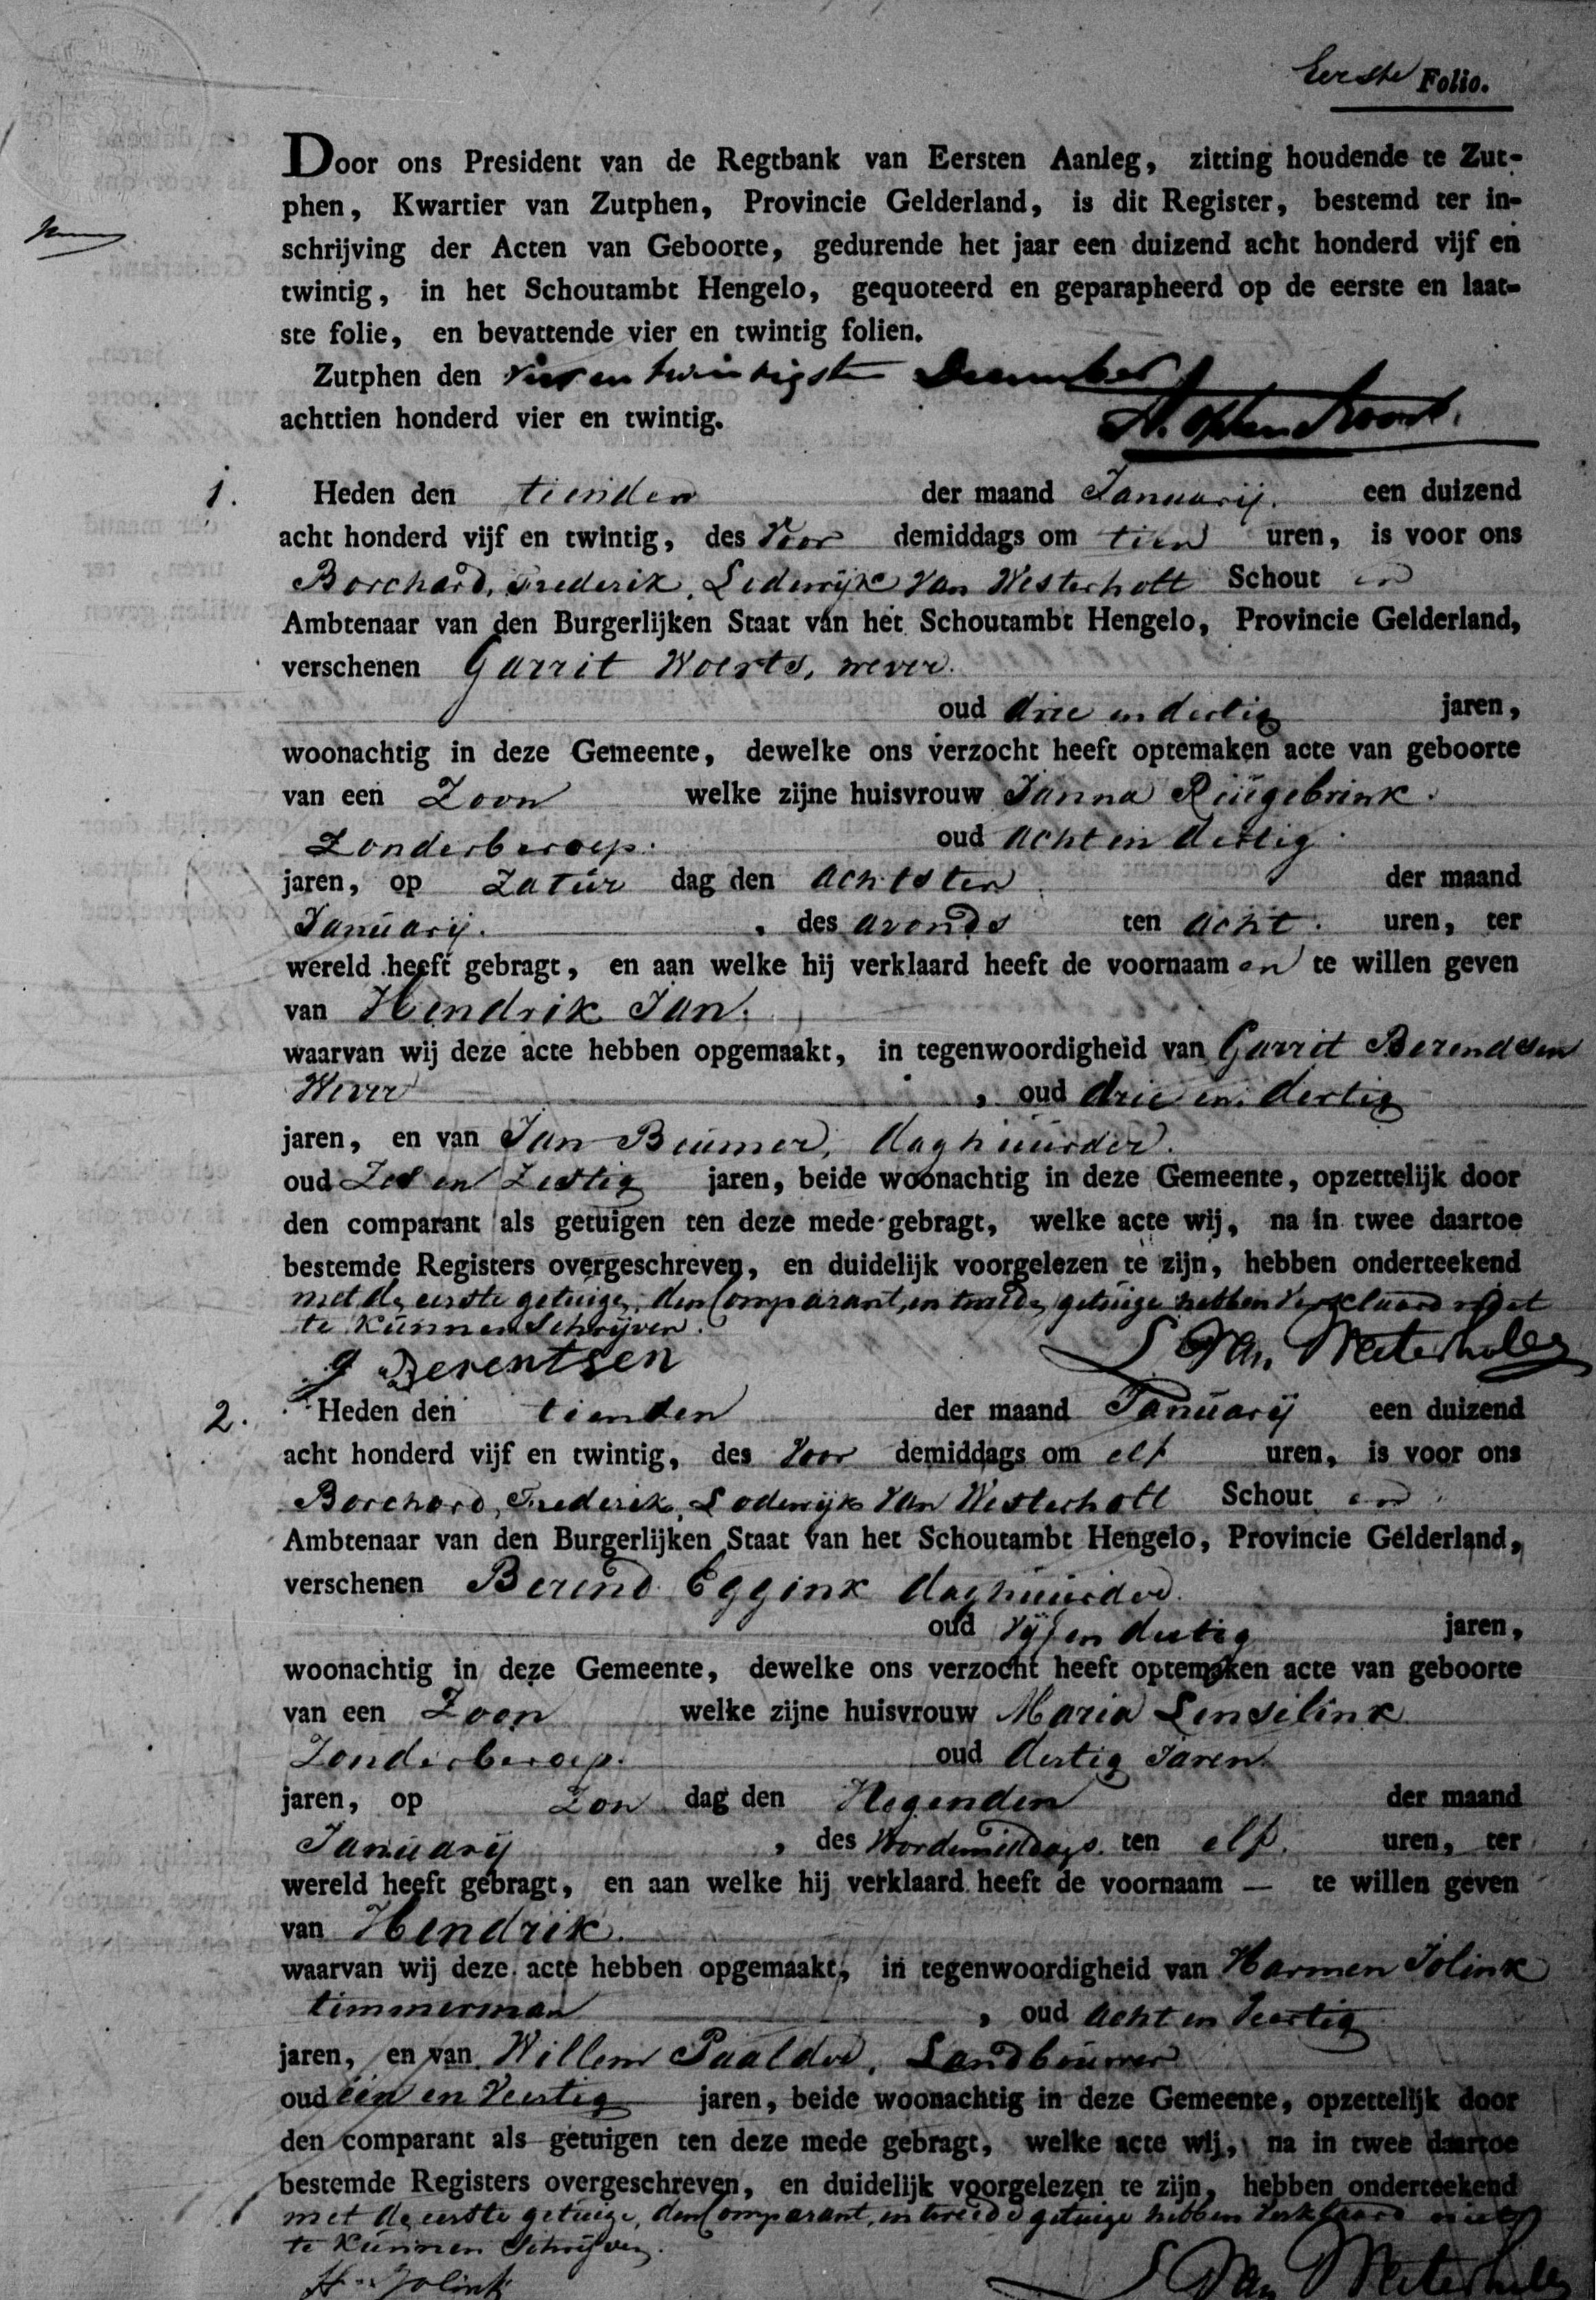 Eerste Folio.
Door ons President van de Regtbank van Eersten Aanleg, zitting houdende te Zut-
phen, Kwartier van Zutphen, Provincie Gelderland, is dit Register, bestemd ter in-
schrijving der Acten van Geboorte, gedurende het jaar een duizend acht honderd vijf en
twintig, in het Schoutambt Hengelo, gequoteerd en geparapheerd op de eerste en laat-
ste folie, en bevattende vier en twintig folien.
Zutphen den vier en twintigste December
achttien honderd vier en twintig.
1. Heden den tienden der maand Januarij. een duizend
acht honderd vijf en twintig, des Voor demiddags om tien uren, is voor ons
Borchard, Frederik, Lodewijk Van Westerholt Schout en
Ambtenaar van den Burgerlijken Staat van het Schoutambt Hengelo, Provincie Gelderland,
verschenen Garrit Woerts, wever.
oud drie en dertig jaren,
woonachtig in deze Gemeente, dewelke ons verzocht heeft optemaken acte van geboorte
van een Zoon welke zijne huisvrouw Janna Reügebrink.
Zonderberoep. oud acht en dertig.
jaren, op Zatür dag den achtsten der maand
Janüarij. , des avonds ten acht. uren, ter
wereld heeft gebragt, en aan welke hij verklaard heeft de voornaam en te willen geven
van Hendrik Jan.
waarvan wij deze acte hebben opgemaakt, in tegenwoordigheid van Garrit Berendsen
Wever , oud drie en dertig
jaren, en van Jan Beumer, daghuurder.
oud Zes en Zestig jaren, beide woonachtig in deze Gemeente, opzettelijk door
den comparant als getuigen ten deze mede gebragt, welke acte wij, na in twee daartoe
bestemde Registers overgeschreven, en duidelijk voorgelezen te zijn, hebben onderteekend
met de eerste getuige, den Comparant, en tweede getuige hebben verklaard niet
te Künnen Schrijven.
g Berentsen L Van Westerholt
2. Heden den tienden der maand Janüarij een duizend
acht honderd vijf en twintig, des Voor demiddags om elf uren, is voor ons
Borchard, Frederik, Lodewijk Van Westerholt Schout en
Ambtenaar van den Burgerlijken Staat van het Schoutambt Hengelo, Provincie Gelderland,
verschenen Berend Eggink daghuurder.
oud Vijf en dertig jaren,
woonachtig in deze Gemeente, dewelke ons verzocht heeft optemaken acte van geboorte
van een Zoon welke zijne huisvrouw Maria Lenselink
Zonderberoep. oud dertig Jaren
jaren, op Zon dag den Negenden der maand
Janüarij , des Voordemiddags ten elf. uren, ter
wereld heeft gebragt, en aan welke hij verklaard heeft de voornaam — te willen geven
van Hendrik.
waarvan wij deze acte hebben opgemaakt, in tegenwoordigheid van Harmen Jolink
timmerman , oud acht en Veertig
jaren, en van Willem Paalder, Landbouwer
oud een en Veertig jaren, beide woonachtig in deze Gemeente, opzettelijk door
den comparant als getuigen ten deze mede gebragt, welke acte wij, na in twee daartoe
bestemde Registers overgeschreven, en duidelijk voorgelezen te zijn, hebben onderteekend
met de eerste getuige, den Comparant, en tweede getuige hebben Verklaard niet
te Künnen Schrijven.
H. Jolink L Van Westerholt